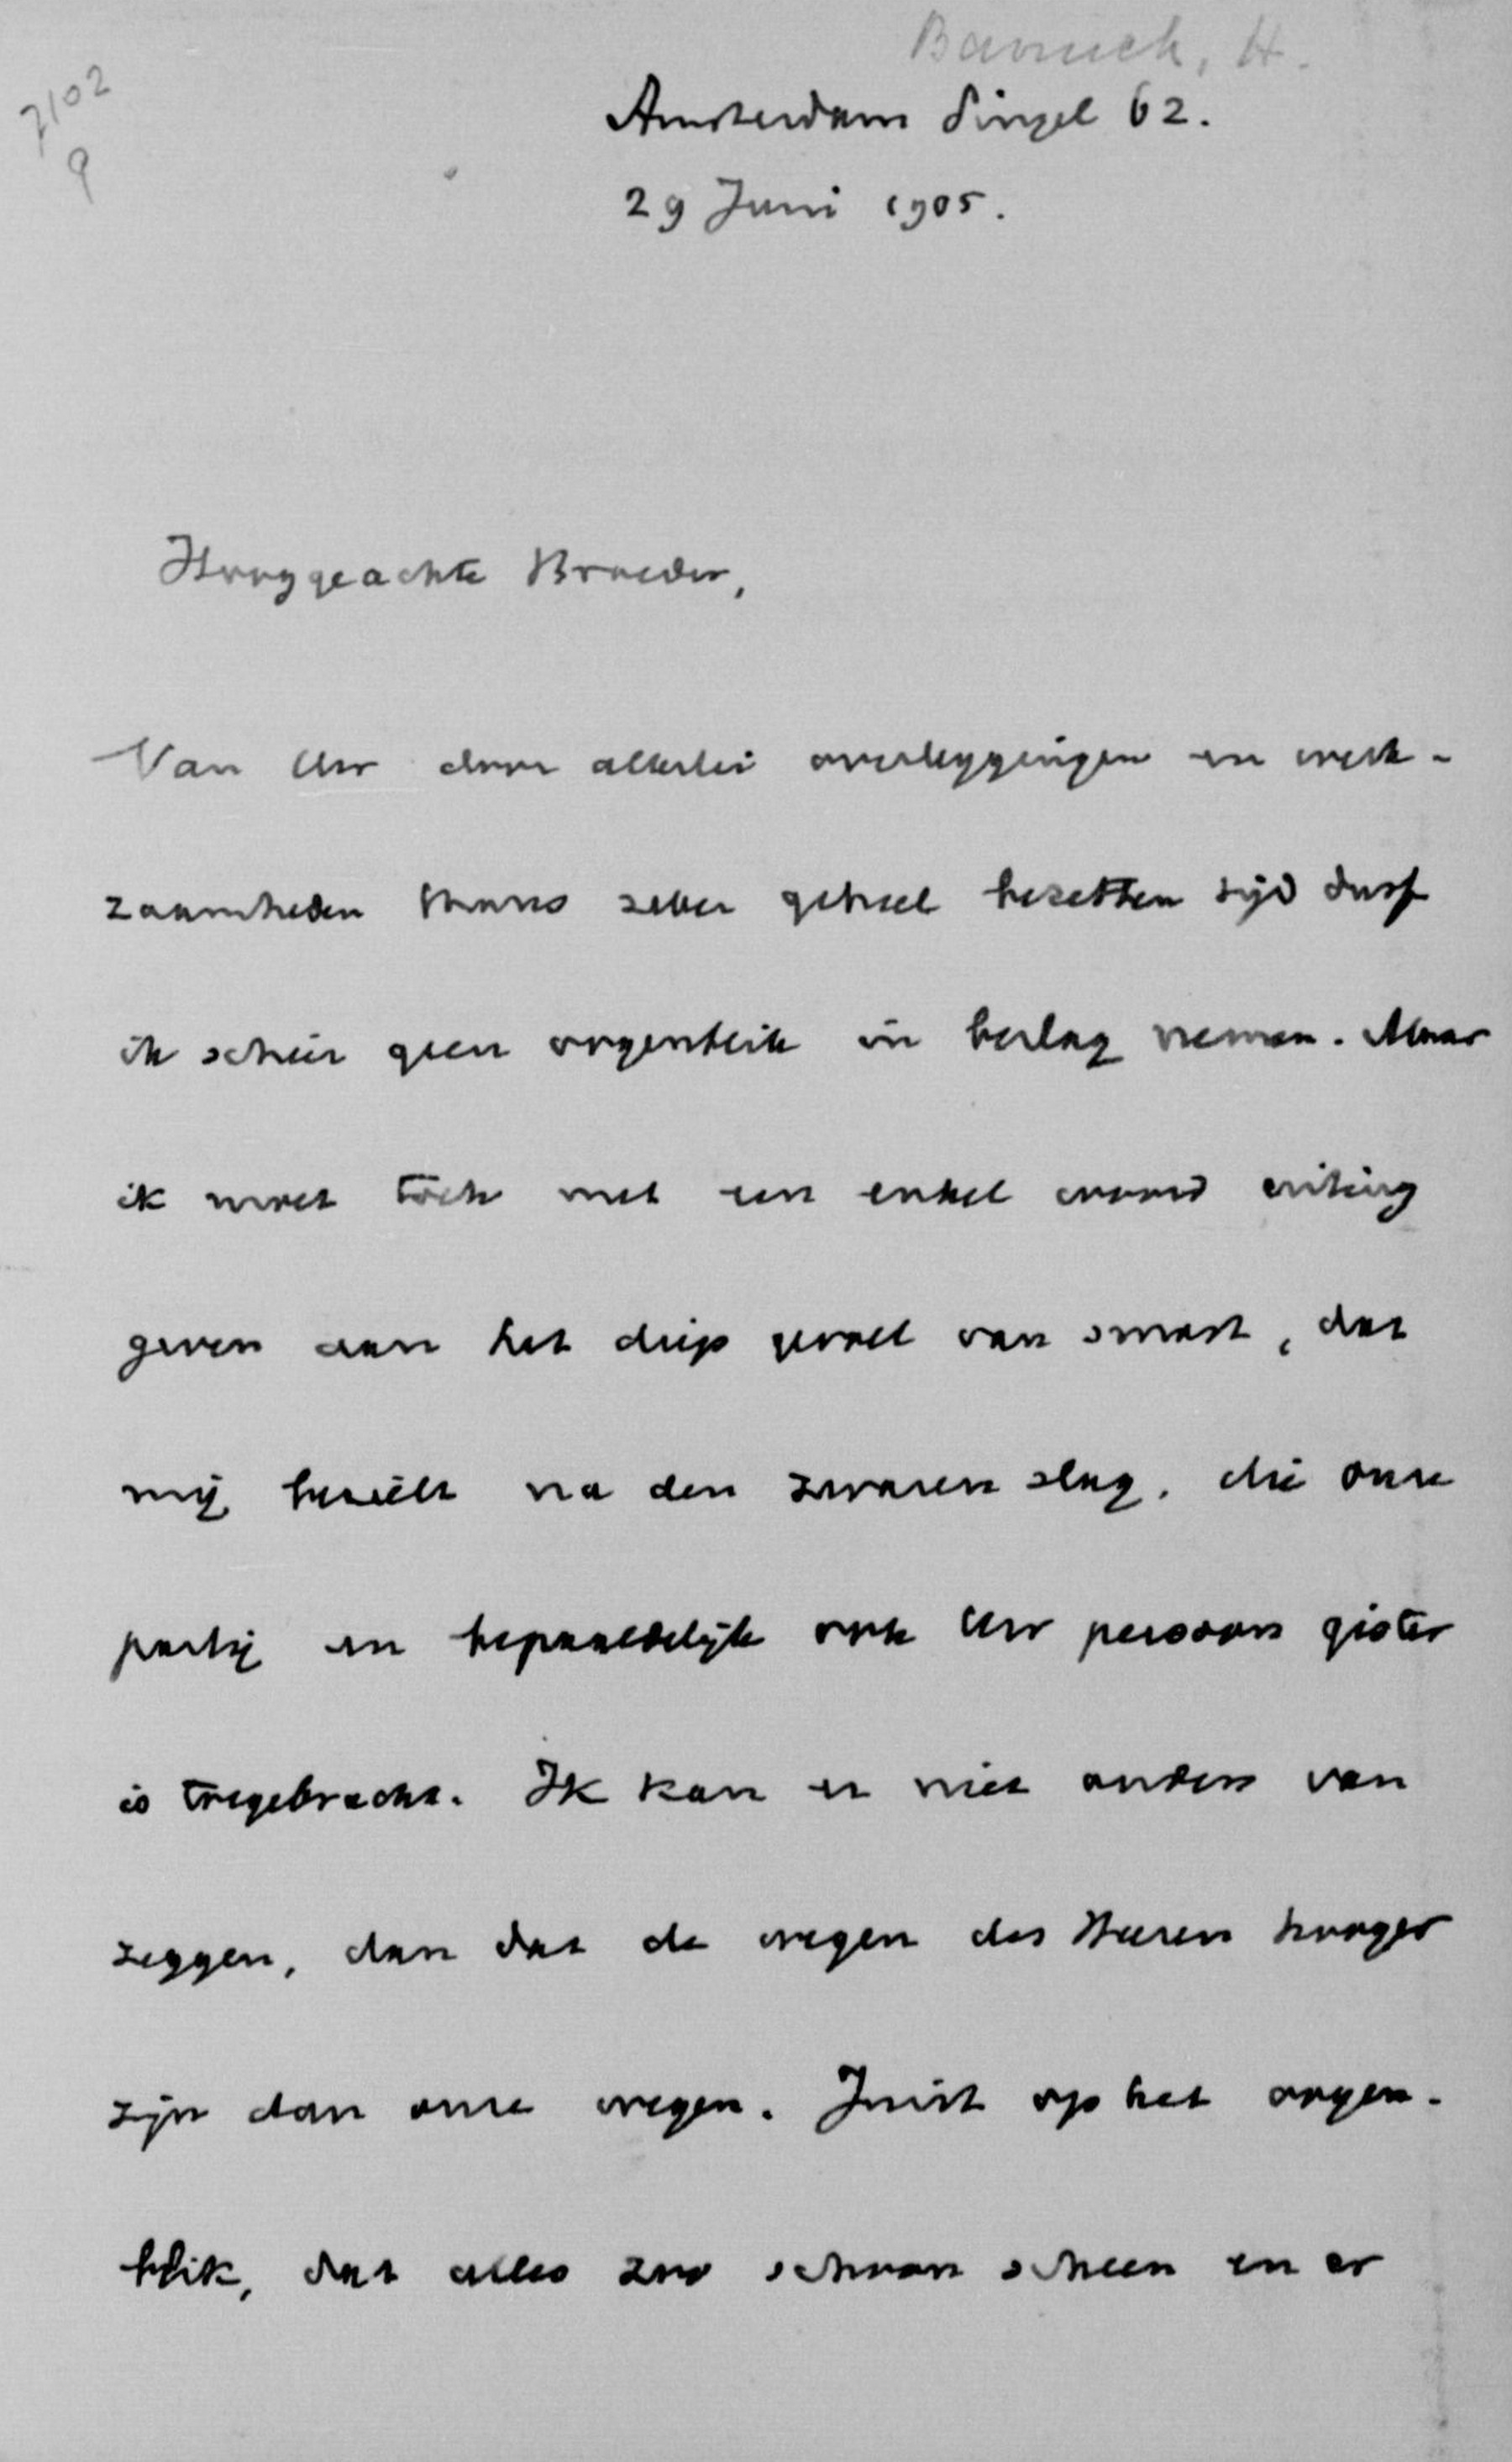 Baruch, H.
7102
9
Amsterdam Singel 62.
29 Juni 1905.
Hooggeachte Broeder,
Van Uw door allerlei overleggingen en werk-
zaamheden thans zeker geheel bezetten tijd durf
ik schier geen oogenblik in beslag nemen. Maar
ik moet toch met een enkel woord uiting
geven aan het diep gevoel van smart, dat
mij bezielt na den zwaren slag, die onze
partij en bepaaldelijk ook Uw persoon gister
is toegebracht. Ik kan er niet anders van
zeggen, dan dat de wegen des Heeren hooger
zijn dan onze wegen. Juist op het oogen-
blik, dat alles zoo schoon scheen en er